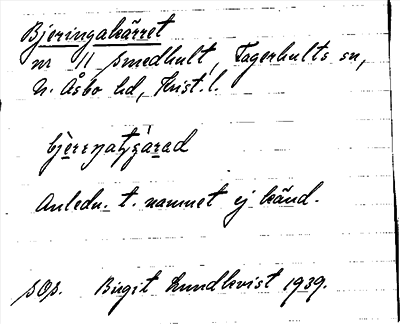 Bjeringakärret
nr 11 Smedhult, Fagerhults sn,
N. Åsbo hd, Krist. l.
Anledn. t. namnet ej känd.
sOp. Birgit Lundkvist 1939.